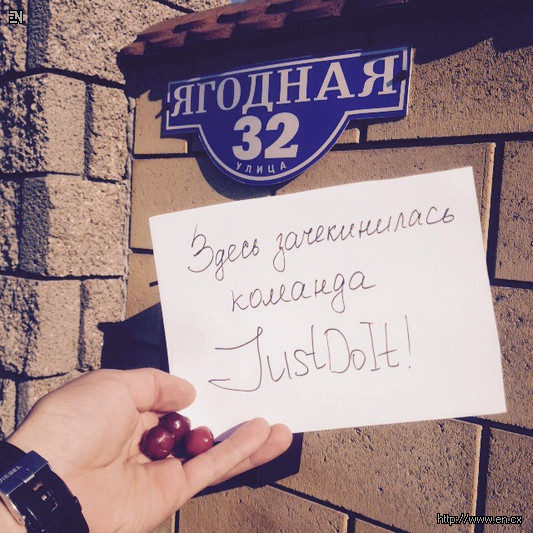 EN
ЯГОДНАЯ
32
УЛИЦА
Здесь зачекинилась
команда
JustDoIt!
DIESEL
http://www.en.cx